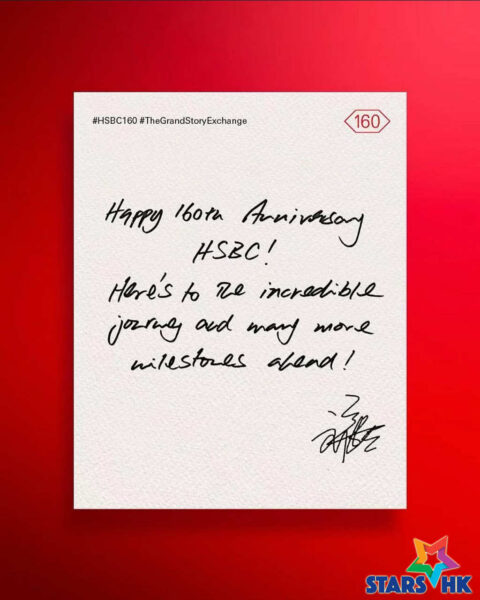 #HSBC160 #TheGrandStoryExchange
160
Happy 160th Anniversary
HSBC!
Here's to the incredible
journey and many more
milestones ahead!
STARS HK